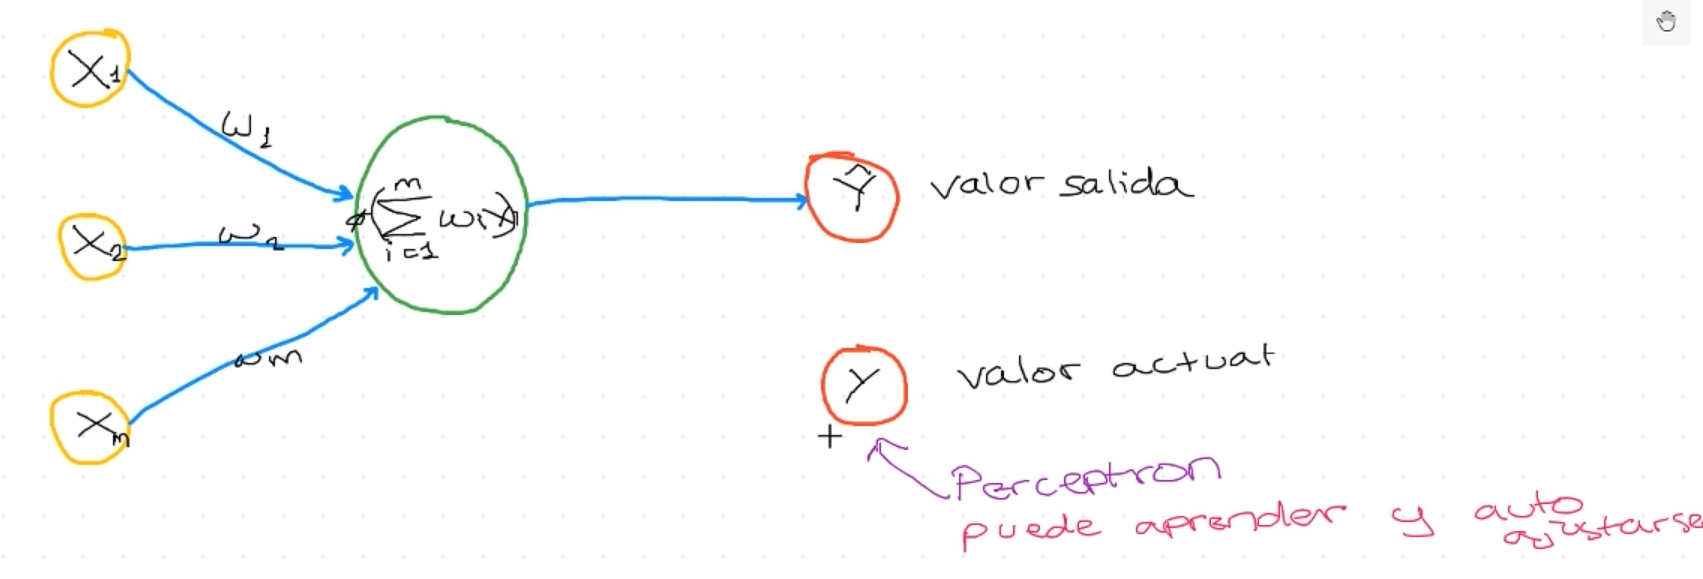 X1
W1
X2
W2
Xm
wm
ϕ(∑ wixi)
m
i=1
Ŷ
valor salida
Y
valor actual
Perceptron
puede aprender y auto
ajustarse